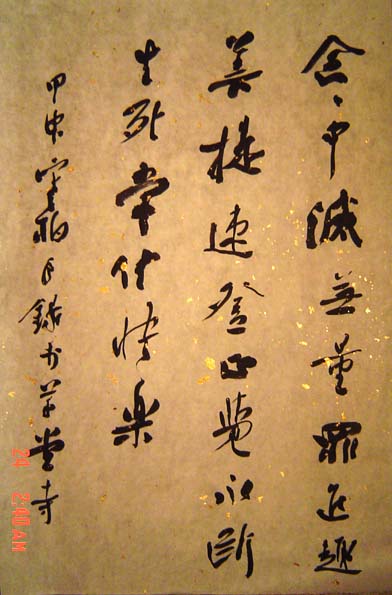 念々中滅无量罪近趣
菩提速登正覺永断
生死常住快樂
甲申 柏 錄书草堂寺
24 2:40 AM